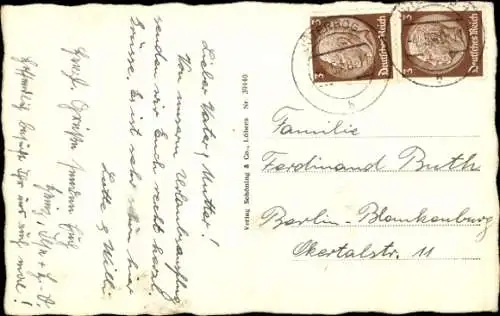 Lieber Vater & Mutter!
Von unserm Urlaubsausflug
senden wir Euch recht herzl.
Grüsse. Es ist sehr schön hier
Lotte & Willi
Herzl. Grüße senden Euch
Hoffentlich besucht Ihr uns auch mal!
Verlag Schöning & Co., Lübeck Nr 39140
3 Deutsches Reich
3 Deutsches Reich
Familie
Ferdinand Buth
Berlin-Blankenburg
Okertalstr. 11